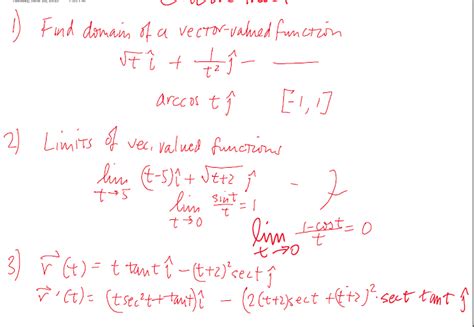 1) Find domain of a vector-valued function
√t î + 1/t² ĵ - ___
arccos t ĵ [-1, 1]
2) Limits of vec. valued functions
lim t→5 (t-5)î + √t+2 ĵ -
lim t→0 sint/t = 1
lim t→0 1-cost/t = 0
3) r⃗(t) = t tant î - (t+2)² sect ĵ
r⃗'(t) = (t sec²t + tant)î - (2(t+2)sect + (t+2)²·sect tant ĵ